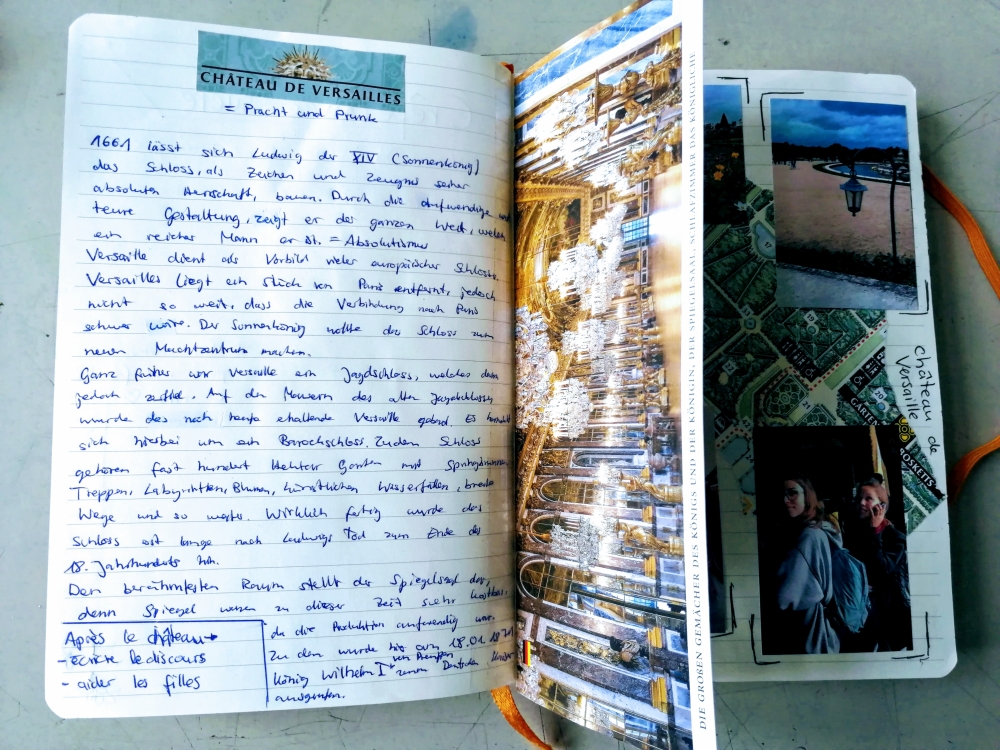 CHÂTEAU DE VERSAILLES
= Pracht und Prunk
1661 lässt sich Ludwig der XIV (Sonnenkönig)
das Schloss, als Zeichen und Zeugnis seiner
absoluten Herrschaft, bauen. Durch die aufwendige und
teure Gestaltung, zeigt er der ganzen Welt, welch
ein reicher Mann er ist. = Absolutismus
Versaille dient als Vorbild vieler europäischer Schlösser.
Versailles liegt ein Stück von Paris entfernt, jedoch
nicht so weit, dass die Verbindung nach Paris
schwer wäre. Der Sonnenkönig wollte das Schloss zum
neuen Machtzentrum machen.
Ganz früher war Versaille ein Jagdschloss, welches dann
jedoch zerfiel. Auf den Mauern des alten Jagdschlosses
wurde das noch heute erhaltende Versaille gebaut. Es handelt
sich hierbei um ein Barockschloss. Zu dem Schloss
gehören fast hundert Hektar Garten mit Springbrunnen
Treppen, Labyrinthen, Blumen, künstlichen Wasserfällen, breite
Wege und so weiter. Wirklich fertig wurde das
Schloss erst lange nach Ludwigs Tod zum Ende des
18. Jahrhunderts hin.
Den berühmtesten Raum stellt der Spiegelsaal dar,
denn Spiegel waren zu dieser Zeit sehr kostbar,
da die Produktion aufwendig war.
Zu dem wurde hier am 18.01.1871
König Wilhelm I von Preußen zum Deutschen Kaiser
ausgerufen.
Après le château →
- écrire le discours
- aider les filles
DIE GROßEN GEMÄCHER DES KÖNIGS UND DER KÖNIGIN, DER SPIEGELSAAL, SCHLAFZIMMER DAS KÖNIGLICHE
Château de
Versaille
GÄRTEN
BOSKETTS